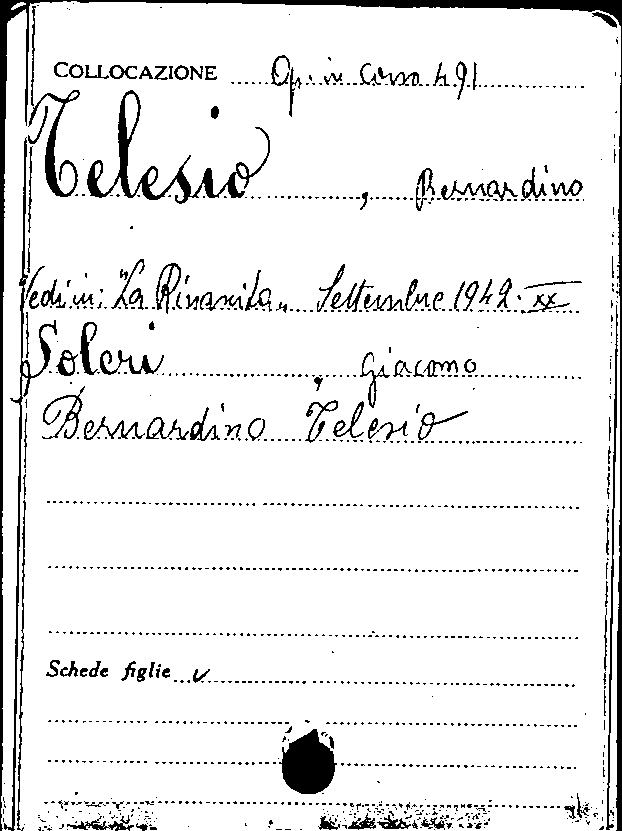 COLLOCAZIONE Op. in Corso 491
Telesio, Bernardino
Vedi in: "La Rinascita„ Settembre 1942. XX
Soleri, Giacomo
Bernardino Telesio
Schede figlie v